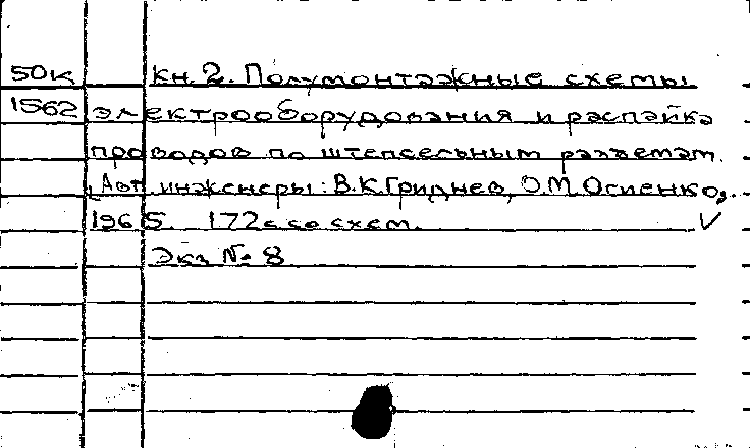 50к кн. 2. Полумонтажные схемы
1562 электрооборудования и распайка
проводов по штепсельным разъемам.
Авт. инженеры: В.К.Гриднев, О.М.Осиенко,
1965. 172с со схем. V
Экз № 8